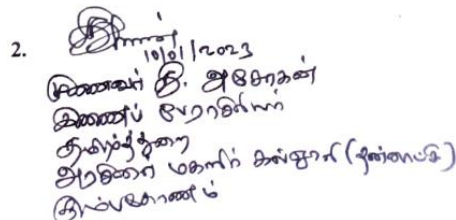 2.
10/01/2023
முனைவர் தி. அசோகன்
இணைப் பேராசிரியர்
தமிழ்த்துறை
அரசினர் மகளிர் கல்லூரி (தன்னாட்சி)
கும்பகோணம்